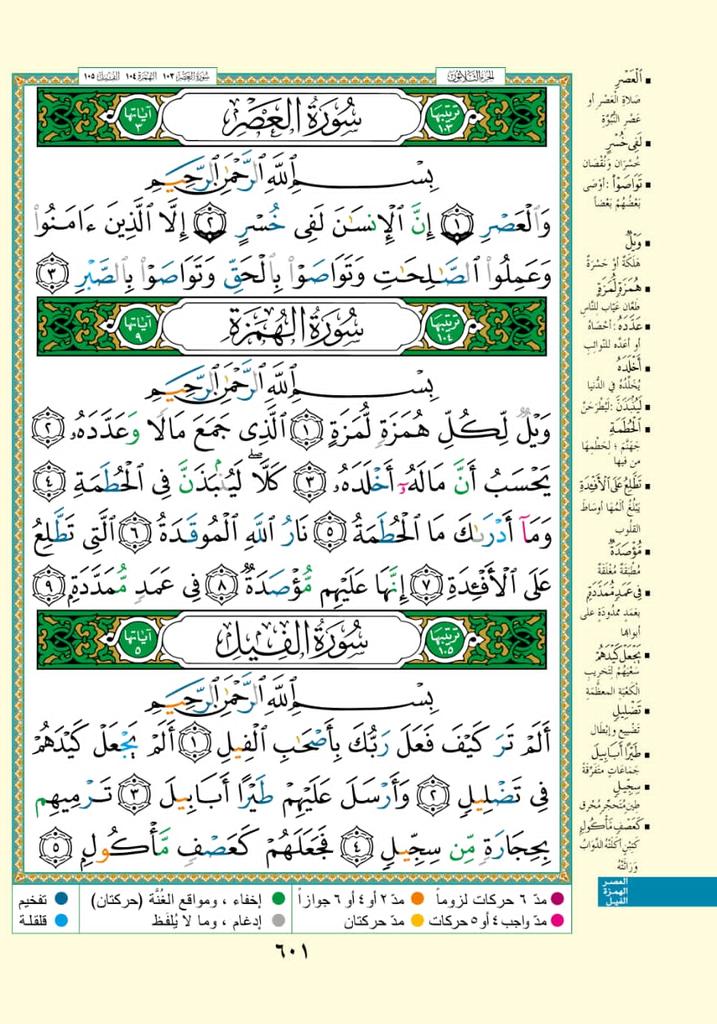 سُورَةُ العَصْرِ ١٠٣ الهُمَزَة ١٠٤ الفِيل ١٠٥
الجزء الثلاثون
ترتيبها ١٠٣ سُورَةُ العَصْرِ آياتها ٣
بِسْمِ ٱللَّهِ ٱلرَّحْمَٰنِ ٱلرَّحِيمِ
وَٱلْعَصْرِ ١ إِنَّ ٱلْإِنسَٰنَ لَفِى خُسْرٍ ٢ إِلَّا ٱلَّذِينَ ءَامَنُوا۟
وَعَمِلُوا۟ ٱلصَّٰلِحَٰتِ وَتَوَاصَوْا۟ بِٱلْحَقِّ وَتَوَاصَوْا۟ بِٱلصَّبْرِ ٣
ترتيبها ١٠٤ سُورَةُ الهُمَزَةِ آياتها ٩
بِسْمِ ٱللَّهِ ٱلرَّحْمَٰنِ ٱلرَّحِيمِ
وَيْلٌ لِّكُلِّ هُمَزَةٍ لُّمَزَةٍ ١ ٱلَّذِى جَمَعَ مَالًا وَعَدَّدَهُۥ ٢
يَحْسَبُ أَنَّ مَالَهُۥٓ أَخْلَدَهُۥ ٣ كَلَّا ۖ لَيُنۢبَذَنَّ فِى ٱلْحُطَمَةِ ٤
وَمَآ أَدْرَىٰكَ مَا ٱلْحُطَمَةُ ٥ نَارُ ٱللَّهِ ٱلْمُوقَدَةُ ٦ ٱلَّتِى تَطَّلِعُ
عَلَى ٱلْأَفْـِٔدَةِ ٧ إِنَّهَا عَلَيْهِم مُّؤْصَدَةٌ ٨ فِى عَمَدٍ مُّمَدَّدَةٍۭ ٩
ترتيبها ١٠٥ سُورَةُ الفِيلِ آياتها ٥
بِسْمِ ٱللَّهِ ٱلرَّحْمَٰنِ ٱلرَّحِيمِ
أَلَمْ تَرَ كَيْفَ فَعَلَ رَبُّكَ بِأَصْحَٰبِ ٱلْفِيلِ ١ أَلَمْ يَجْعَلْ كَيْدَهُمْ
فِى تَضْلِيلٍ ٢ وَأَرْسَلَ عَلَيْهِمْ طَيْرًا أَبَابِيلَ ٣ تَرْمِيهِم
بِحِجَارَةٍ مِّن سِجِّيلٍ ٤ فَجَعَلَهُمْ كَعَصْفٍ مَّأْكُولٍۭ ٥
▪ ٱلْعَصْرِ
صَلَاةِ الْعَصْرِ أو
عَصْرِ النُّبُوَّةِ
▪ لَفِى خُسْرٍ
خُسْرَانٍ وَنُقْصَانٍ
▪ تَوَاصَوْا۟ : أَوْصَى
بَعْضُهُمْ بَعْضاً
▪ وَيْلٌ
هَلَكَةٌ أَوْ حَسْرَةٌ
▪ هُمَزَةٍ لُّمَزَةٍ
طَعَّانٍ عَيَّابٍ لِلنَّاسِ
▪ عَدَّدَهُ : أَحْصَاهُ
أو أَعَدَّه للنَّوائِبِ
▪ أَخْلَدَهُ
يُخَلِّدُهُ فِي الدُّنْيا
▪ لَيُنۢبَذَنَّ : لَيُطْرَحَنَّ
▪ ٱلْحُطَمَةِ
جَهَنَّمَ ؛ لحَطْمِها
من فيها
▪ تَطَّلِعُ عَلَى ٱلْأَفْـِٔدَةِ
يَبْلُغُ أَلَمُهَا أَوْسَاطَ
القُلُوبِ
▪ مُّؤْصَدَةٌ
مُطْبَقَةٌ مُغْلَقَةٌ
▪ فِى عَمَدٍ مُّمَدَّدَةٍ
بعَمَدٍ ممْدُودَةٍ على
أبوابها
▪ يَجْعَلْ كَيْدَهُمْ
سَعْيَهُمْ لِتَخْرِيبِ
الكَعْبَةِ المعظَّمةِ
▪ تَضْلِيلٍ
تَضْيِيعٍ وإبْطَالٍ
▪ طَيْرًا أَبَابِيلَ
جَمَاعَاتٍ مُتَفَرِّقَةً
▪ سِجِّيلٍ
طِينٍ مُتَحَجِّرٍ مُحْرَقٍ
▪ كَعَصْفٍ مَّأْكُولٍ
كَتِبْنٍ أَكَلَتْهُ الدَّوَابُّ
وَرَاثَتْهُ
العصر
الهمزة
الفيل
مدّ ٦ حركات لزوماً
مدّ ٢ أو ٤ أو ٦ جوازاً
إخفاء ، ومواقع الغُنَّة (حركتان)
تفخيم
مدّ واجب ٤ أو ٥ حركات
مدّ حركتان
إدغام ، وما لا يُلفَظ
قلقلة
٦٠١